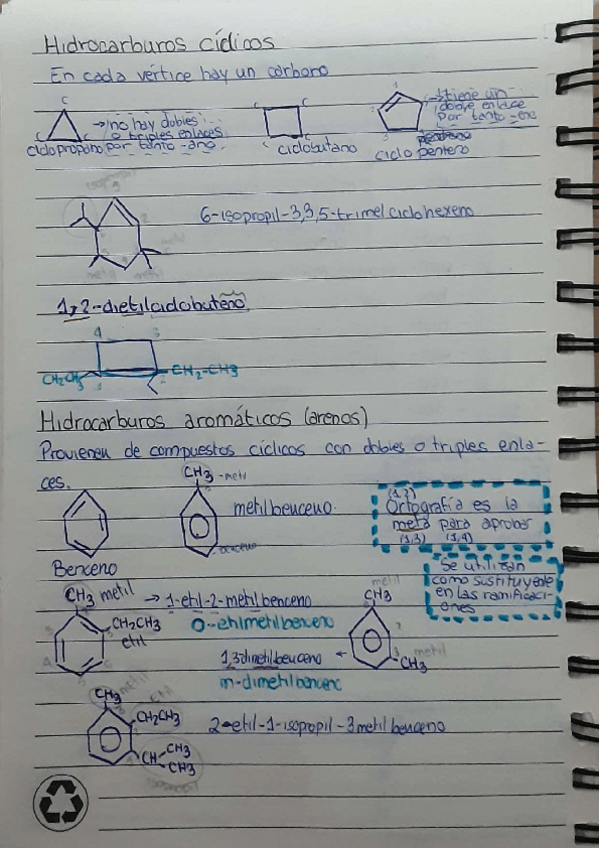 Hidrocarburos cíclicos
En cada vértice hay un carbono
C
C C
→ no hay dobles
o triples enlaces
por tanto -ano.
ciclopropano
C C
C C
ciclobutano
1
2
3
tiene un
doble enlace
por tanto -eno
ciclo penteno
isopropil
6-isopropil-3,3,5-trimetciclohexeno
metil metil
1,2-dietilciclobuteno
4 3
CH2CH3 1 2 CH2-CH3
Hidrocarburos aromáticos (arenos)
Provienen de compuestos cíclicos con dobles o triples enla-
ces.
CH3 -metil
metilbenceno
benceno
Benceno
(1,2)
Ortografía es la
meta para aprobar
(1,3) (1,4)
Se utilizan
como sustituyente
en las ramificaci-
ones
CH3 metil → 1-etil-2-metilbenceno
CH2CH3
etil
o-etilmetilbenceno
metil
CH3
2
3
metil
CH3
1,3dimetilbenceno ←
m-dimetilbenceno
CH3 metil
CH2CH3 etil
CH-CH3
CH3
isopropil
2-etil-1-isopropil-3metilbenceno